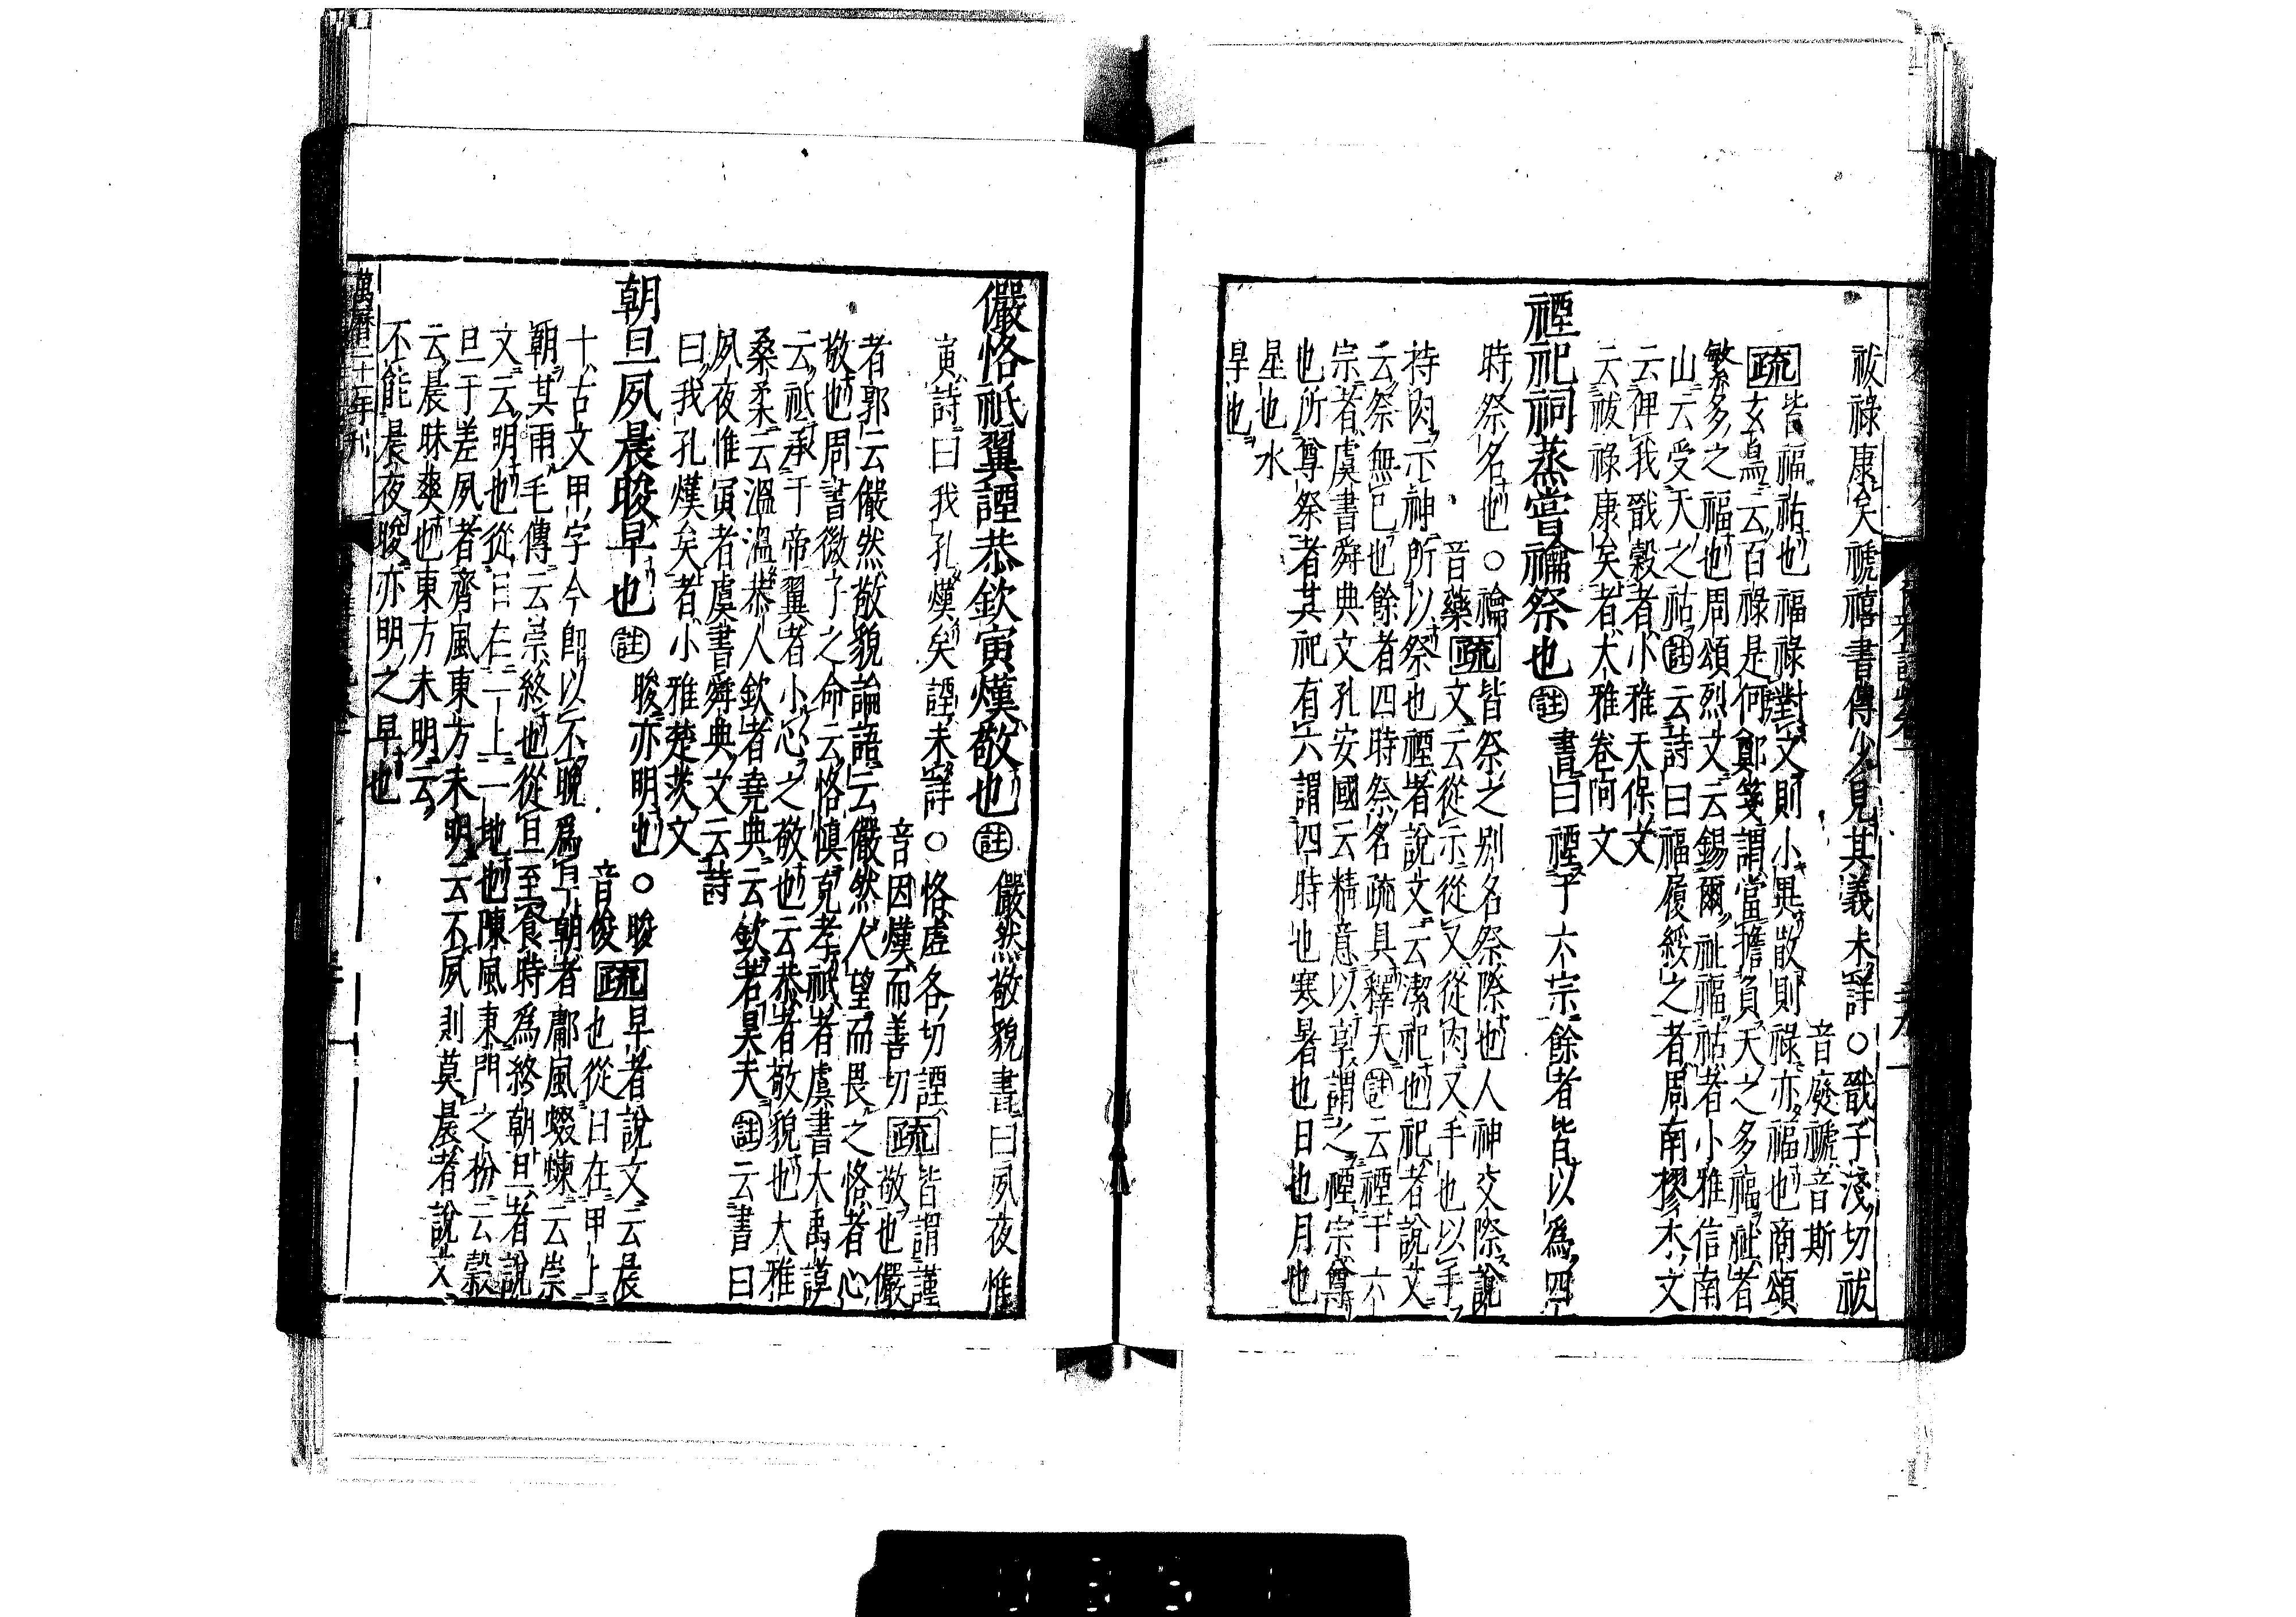 祓祿康矣禠禧書傳少見其義未詳○戩子淺切祓
音廢禠音斯
疏皆福祜也福祿對文則小異散則祿亦福也商頌
玄鳥云百祿是何鄭箋謂當擔負天之多福祉者
繁多之福也周頌烈文云錫爾祉福祜者小雅信南
山云受天之祜註云詩曰福履綏之者周南樛木文
云俾我戩穀者小雅天保文
云祓祿康矣者大雅卷阿文
禋祀祠蒸嘗禴祭也註書曰禋于六宗餘者皆以為四
時祭名也○禴
音藥疏皆祭之別名祭際也人神交際說
文云從示從又從肉又手也以手
持肉示神所以祭也禋者說文云潔祀也祀者說文
云祭無已也餘者四時祭名疏具釋天註云禋于六
宗者虞書舜典文孔安國云精意以享謂之禋宗尊
也所尊祭者其祀有六謂四時也寒暑也日也月也
星也水
旱也
儼恪祗翼諲恭欽寅熯敬也註儼然敬貌書曰夙夜惟
寅詩曰我孔熯矣諲未詳○恪虛各切諲
音因熯而善切疏皆謂謹
敬也儼
者郭云儼然敬貌論語云儼然人望而畏之恪者心
敬也周書微子之命云恪慎克孝祗者虞書大禹謨
云祗承于帝翼者小心之敬也云恭者敬貌也大雅
桑柔云溫溫恭人欽者堯典云欽若昊天註云書曰
夙夜惟寅者虞書舜典文云詩
曰我孔熯矣者小雅楚茨文
朝旦夙晨晙早也註晙亦明也○晙
音俊疏早者說文云晨
也從日在甲上
十古文甲字今即以不晚為早朝者鄘風蝃蝀云崇
朝其雨毛傳云崇終也從旦至食時為終朝旦者說
文云明也從日在一上一地也陳風東門之枌云穀
旦于差夙者齊風東方未明云不夙則莫晨者說文
云晨昧爽也東方未明云
不能晨夜晙亦明之早也
萬曆二十一年刊